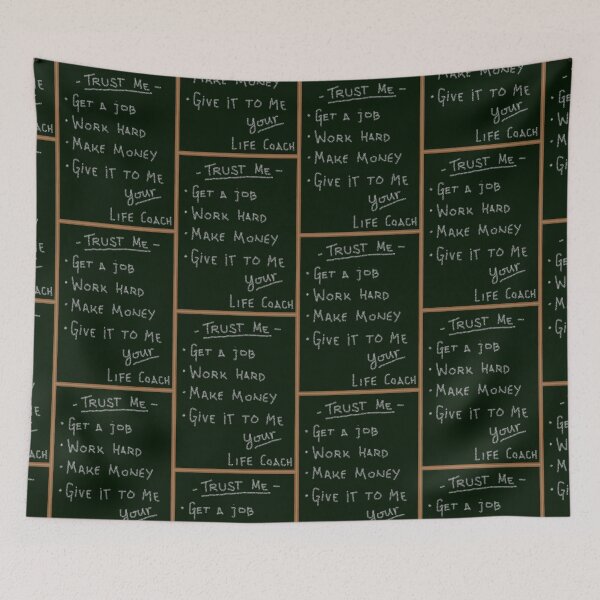 COACH
COACH
COACH
- TRUST ME -
• GET A JOB
• WORK HARD
• MAKE MONEY
• GIVE IT TO ME
your
LIFE COACH
- TRUST ME -
• GET A JOB
• WORK HARD
• MAKE MONEY
• GIVE IT TO ME
your
LIFE COACH
- TRUST ME -
• GET A JOB
• WORK HARD
• MAKE MONEY
• GIVE IT TO ME
your
MAKE MONEY
• GIVE IT TO ME
your
LIFE COACH
- TRUST ME -
• GET A JOB
• WORK HARD
• MAKE MONEY
• GIVE IT TO ME
your
LIFE COACH
- TRUST ME -
• GET A JOB
• WORK HARD
• MAKE MONEY
• GIVE IT TO ME
your
LIFE COACH
- TRUST ME -
• GET A JOB
- TRUST ME -
• GET A JOB
• WORK HARD
• MAKE MONEY
• GIVE IT TO ME
your
LIFE COACH
- TRUST ME -
• GET A JOB
• WORK HARD
• MAKE MONEY
• GIVE IT TO ME
your
LIFE COACH
- TRUST ME -
• GET A JOB
• WORK HARD
• MAKE MONEY
• GIVE IT TO ME
your
MAKE MONEY
• GIVE IT TO ME
your
LIFE COACH
- TRUST ME -
• GET A JOB
• WORK HARD
• MAKE MONEY
• GIVE IT TO ME
your
LIFE COACH
- TRUST ME -
• GET A JOB
• WORK HARD
• MAKE MONEY
• GIVE IT TO ME
your
LIFE COACH
- TRUST ME -
• GET A JOB